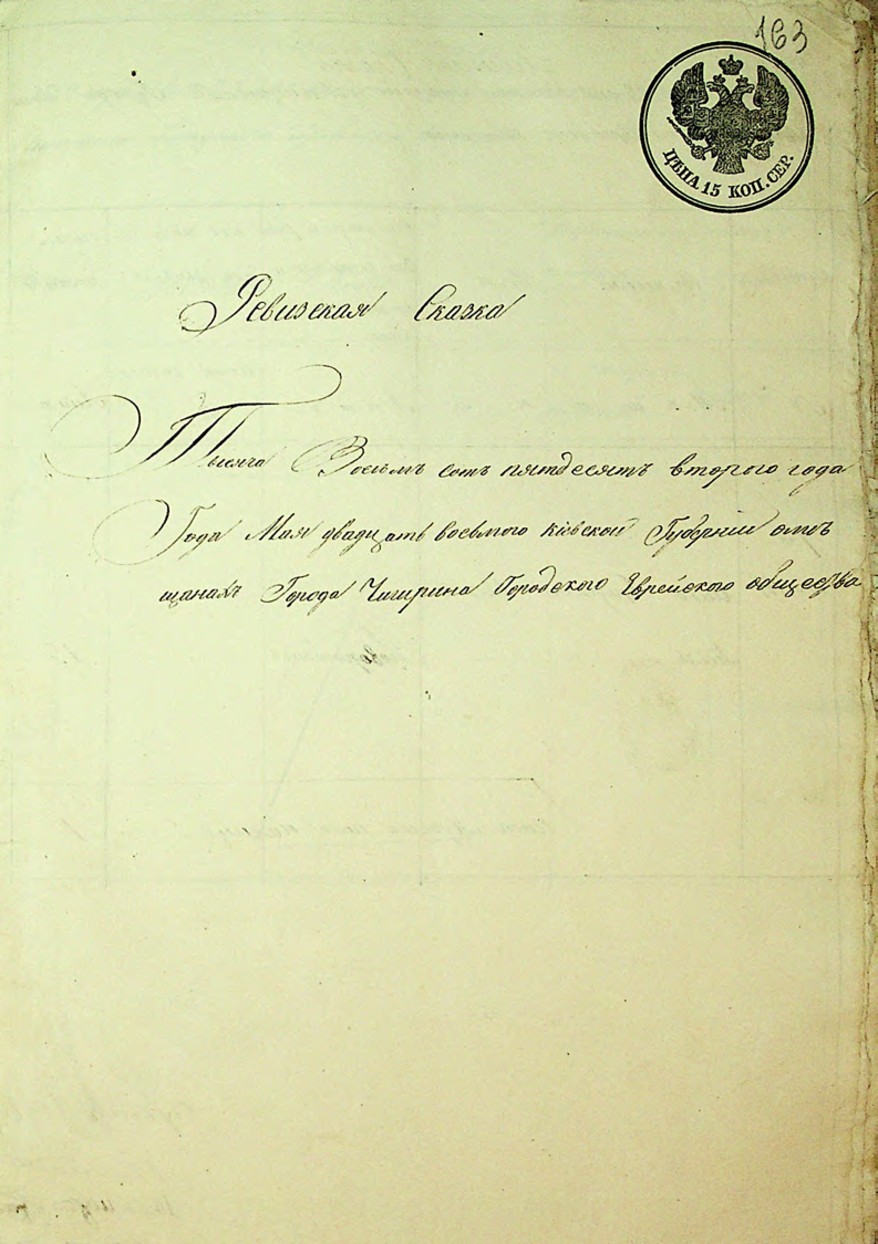 163
ЦѢНА 15 КОП. СЕР.
Ревизская Сказка
Тысяча Восемъ сотъ пятдесятъ второго года
Года Мая двадцать восьмого Кіевской Губерніи омѣ
щанахъ Города Чигрина Городского Еврейского общества